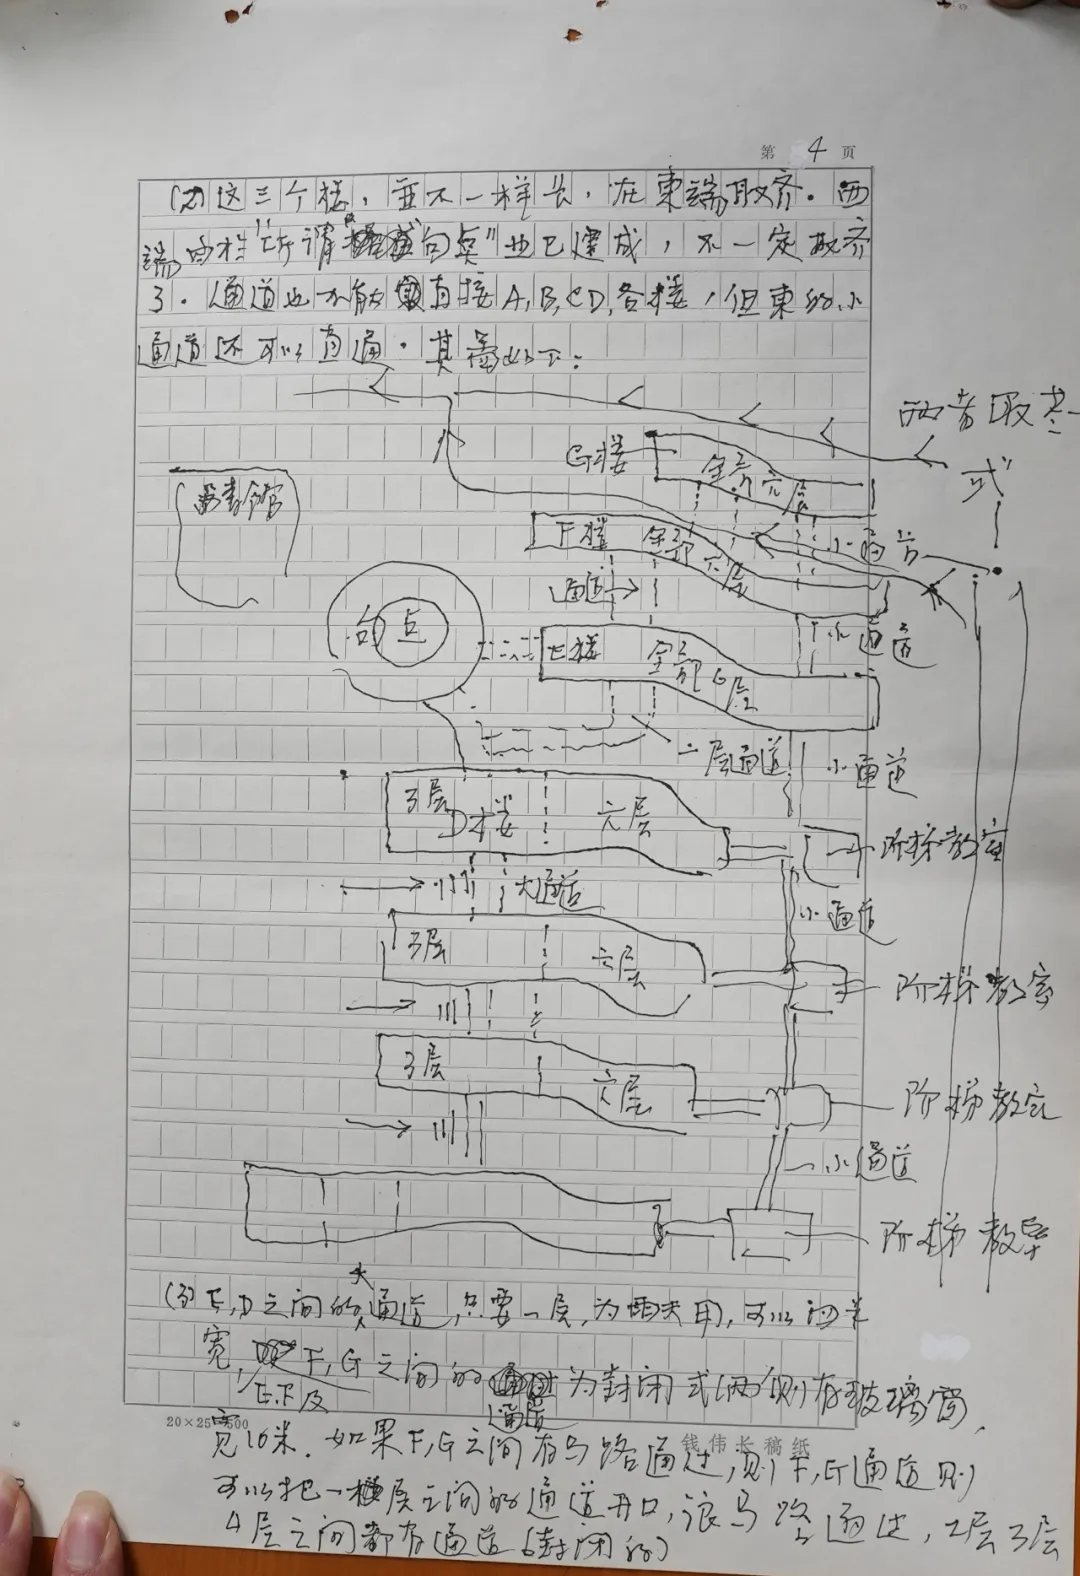 第 4 页
(2)这三个楼，並不一样长，在東端取齐。西
端 "所谓 句点"也已建成，不一定取齐
了。通道也不能 直接A,B,C,D,各楼，但東的小
通道还可以直通。其 如下：
两者取其一
式
G楼 全部六层
图書馆
F楼 全部六层 小通道
通道
句点
E楼 全部6层 小通道
一层通道 小通道
3层 D楼 六层
阶梯教室
大通道 小通道
3层 六层
阶梯教室
3层 六层
阶梯教室
小通道
阶梯教室
(3)E,D之间的大通道，只要一层，为晴天用，可以四米
宽，E.F及F,G之间的通道为封闭式(两侧有玻璃窗，
20×25=500
钱伟长稿纸
宽10米。如果F,G之间有马路通过，则F,G通道则
可以把一层之间的通道开口，让马路通过，2层3层
4层之间都有通道(封闭的)